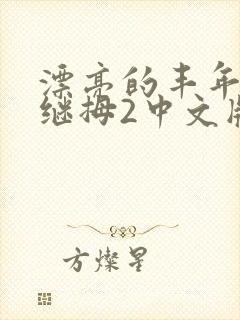 漂亮的丰年
继拇2中文版
方燦星